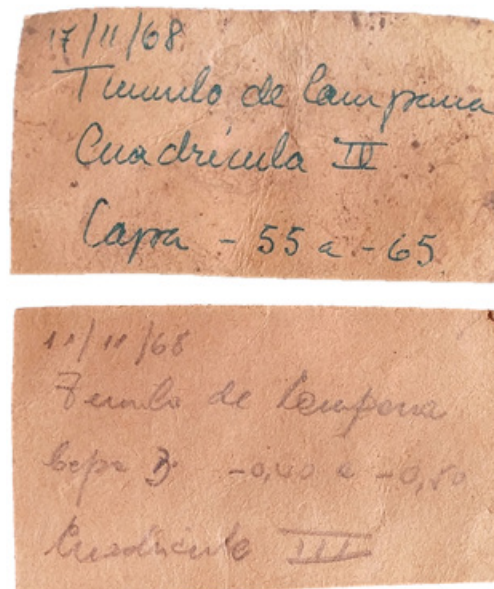 17/11/68
Tumulo de Campana
Cuadrícula IV
Capa - 55 a - 65
11/11/68
Tumulo de Campana
Capa 3 -0,40 a -0,50
Cuadricula III